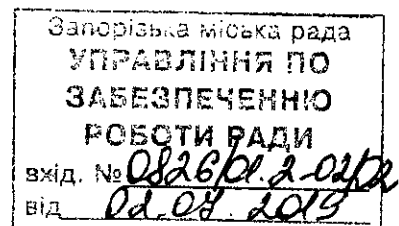 Запорізька міська рада
УПРАВЛІННЯ ПО
ЗАБЕЗПЕЧЕННЮ
РОБОТИ РАДИ
вхід. № 0826/01.2-02/02
від 02.07.2019